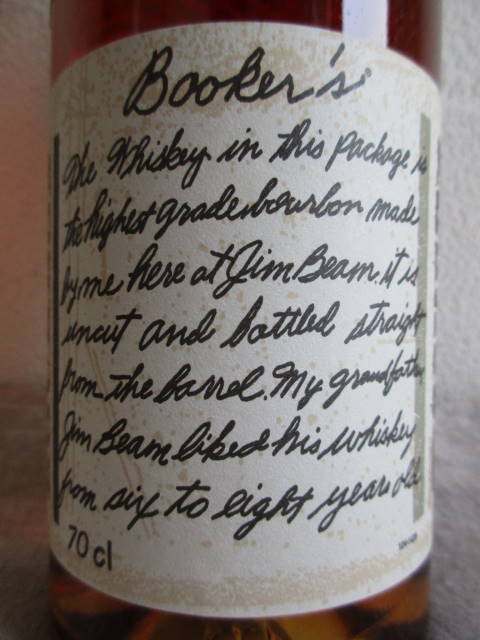 Booker's
The Whiskey in this package is
the highest grade bourbon made
by me here at Jim Beam. it is
uncut and bottled straight
from the barrel. My grandfather
Jim Beam liked his whiskey
from six to eight years old.
70 cl